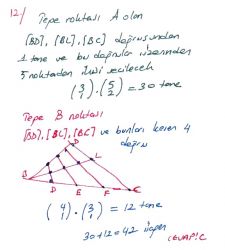 12/ Tepe noktası A olan
[BD], [BL], [BC] doğrusundan
1 tane ve bu doğrular üzerinden
5 noktadan ikisi seçilecek
(3 1) · (5 2) = 30 tane
Tepe B noktası
[BD], [BL], [BC] ve bunları kesen 4
doğru
L
B
D E F C
(4 1) · (3 1) = 12 tane
30+12=42 üçgen
CEVAP: C